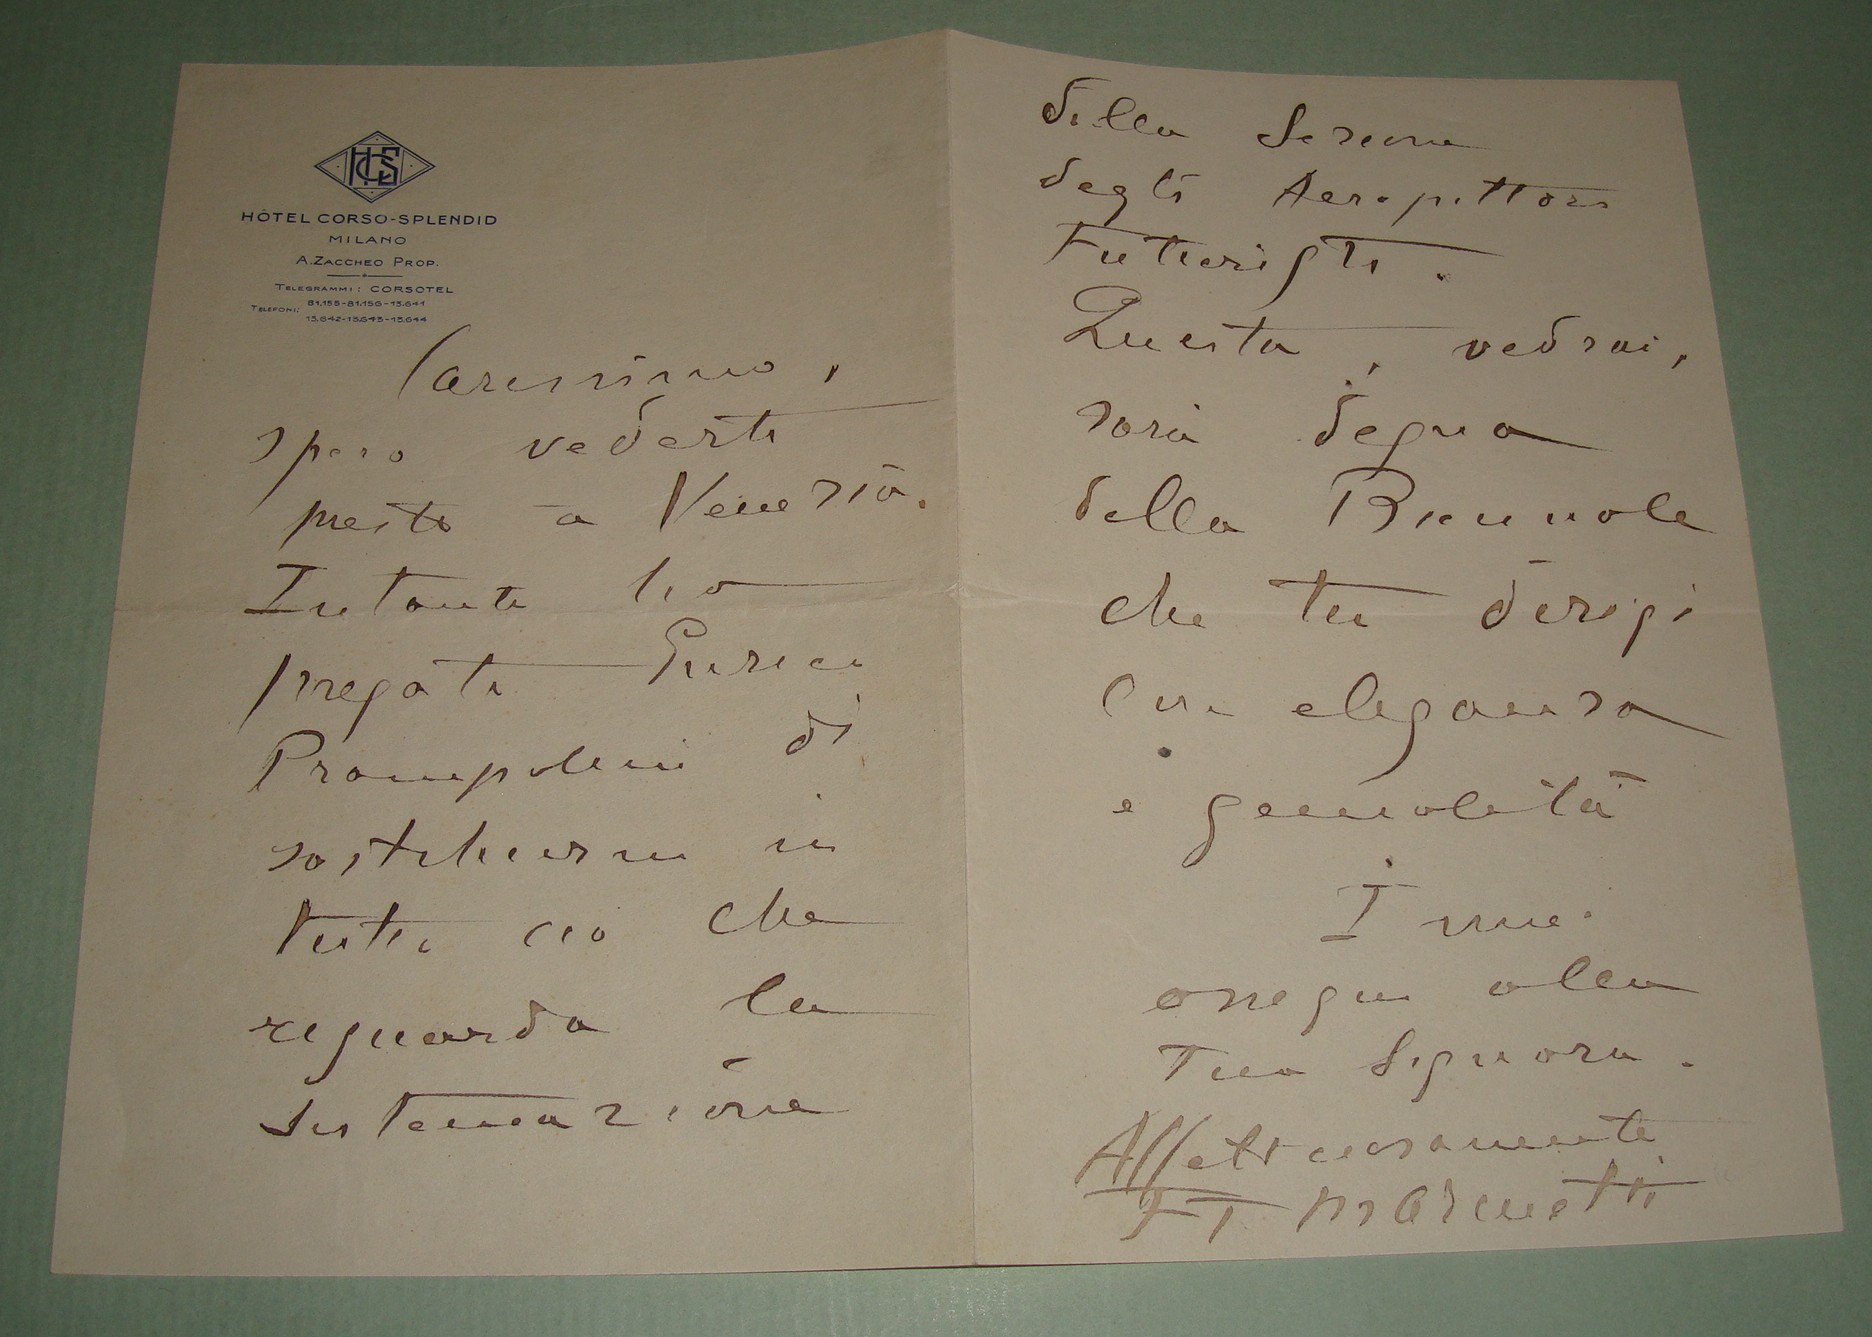 HCS
HÔTEL CORSO-SPLENDID
MILANO
A. ZACCHEO PROP.
TELEGRAMMI: CORSOTEL
TELEFONI: 81.155-81.156-15.641
15.642-15.643-15.644
Carissimo,
spero vederti
presto a Venezia.
Intanto ho
pregato Enrico
Prampolini di
sostituirmi in
tutto ciò che
riguarda la
sistemazione
della Sezione
degli Aeropittori
Futuristi.
Questa, vedrai,
sarà degna
della Biennale
che tu dirigi
con eleganza
e genialità
I miei
ossequi alla
Tua Signora.
Affettuosamente
FT Marinetti